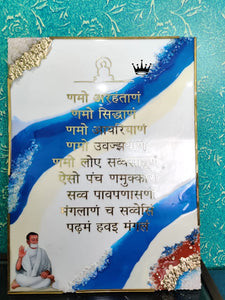 णमो अरहंताणं
णमो सिद्धाणं
णमो आयरियाणं
णमो उवज्झायाणं
णमो लोए सव्वसाहूणं
ऐसो पंच णमुक्कारो
सव्व पावपणासणं
मंगलाणं च सव्वेसिं
पढ़मं हवइ मंगलं